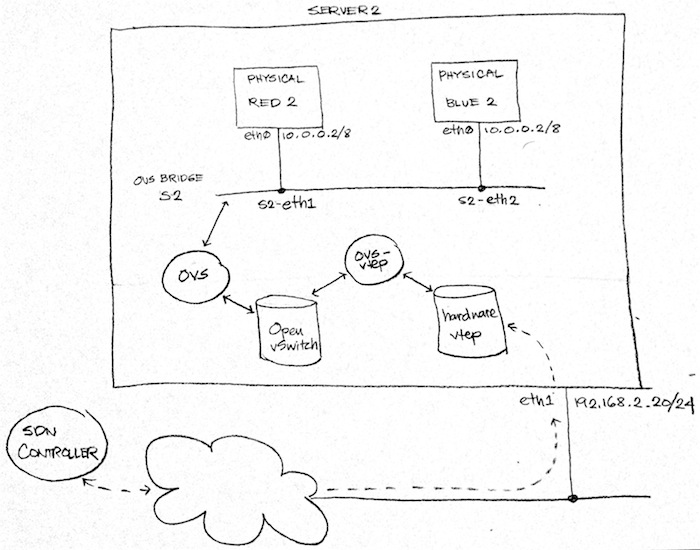 SERVER 2
PHYSICAL
RED 2
PHYSICAL
BLUE 2
eth0 10.0.0.2/8
eth0 10.0.0.2/8
OVS BRIDGE
S2
s2-eth1
s2-eth2
OVS
OVS-
vtep
Open
vSwitch
hardware
vtep
eth1
192.168.2.20/24
SDN
CONTROLLER